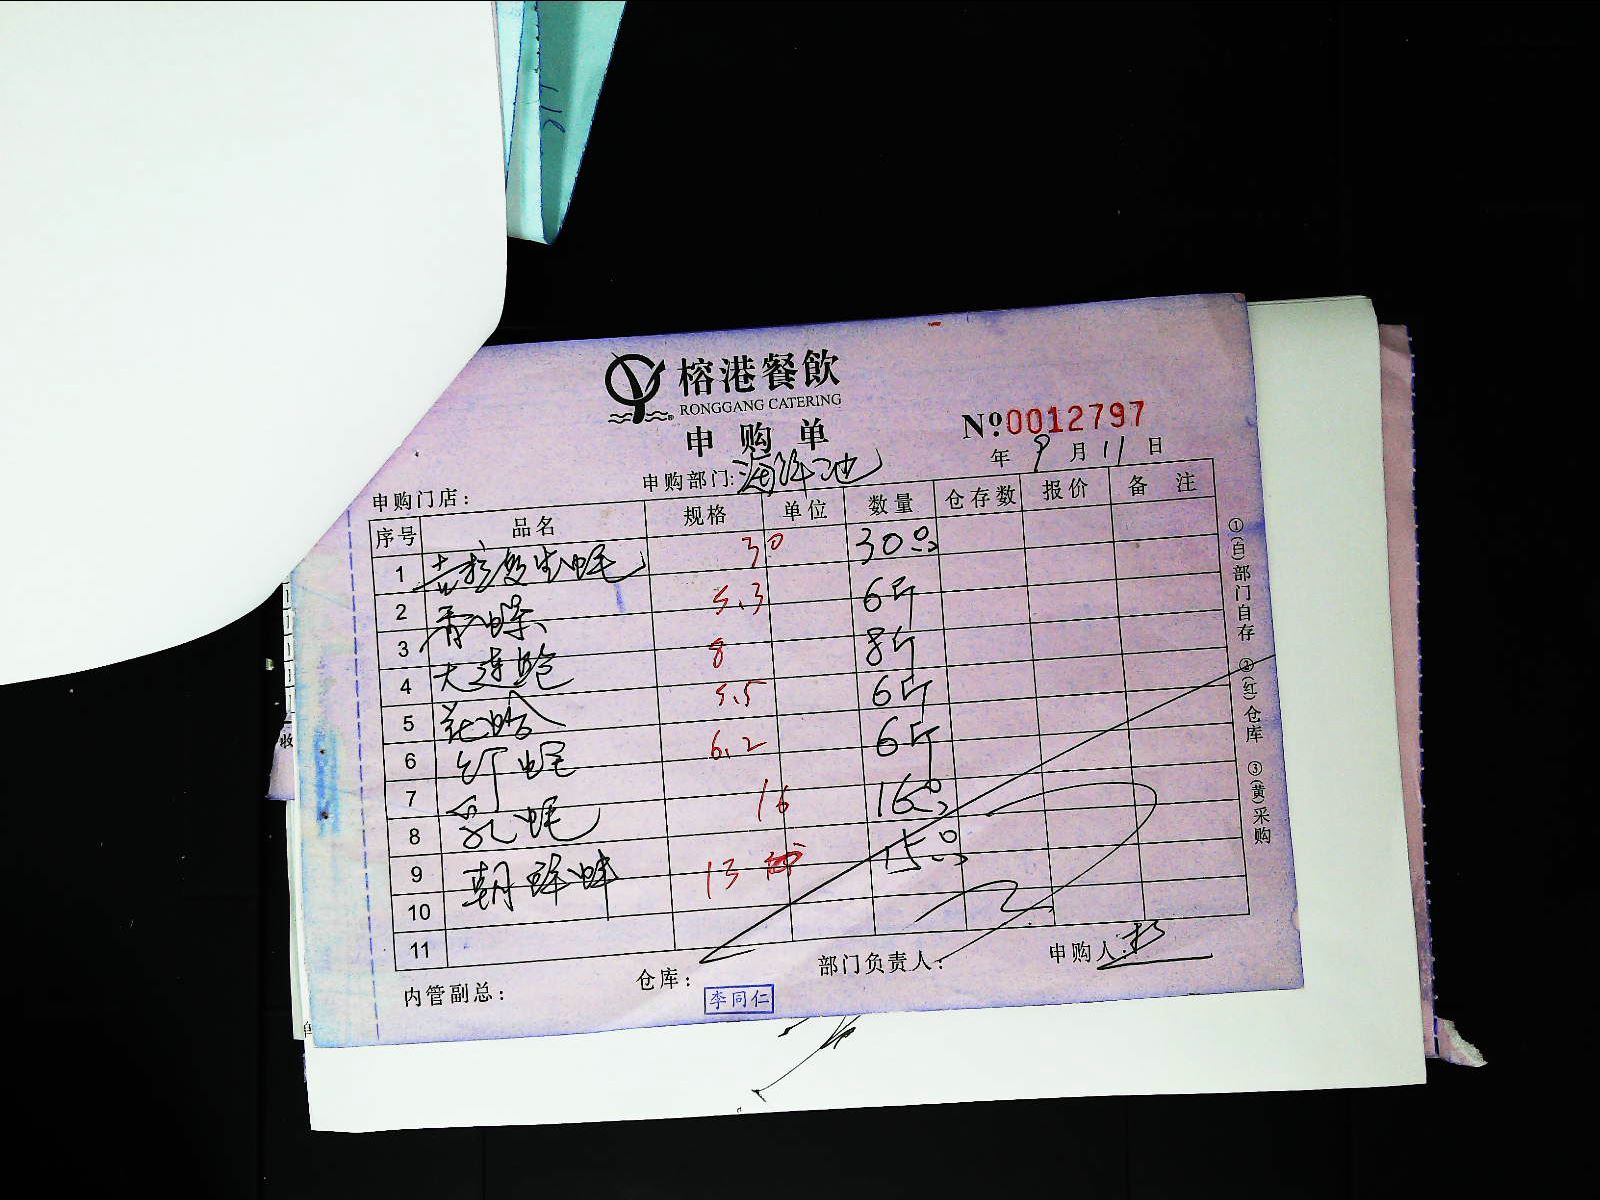 榕港餐飲
RONGGANG CATERING
申购单
№0012797
年 9 月 11 日
申购门店: 申购部门:海鲜池
序号 品名 规格 单位 数量 仓存数 报价 备注
1 吉拉多生蚝 30 30只
2 5.3 6斤
3 大连鲍 8 8斤
4 花哈 5.5 6斤
5 6.2 6斤
6 乳蚝 16 16只
7 13 15只
8
9
10
11
①(白)部门自存 ②(红)仓库 ③(黄)采购
内管副总: 仓库: 李同仁 部门负责人: 申购人:
收